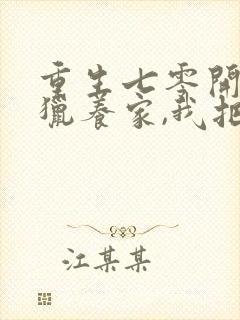 重生七零開
獵養家,我把
江某某